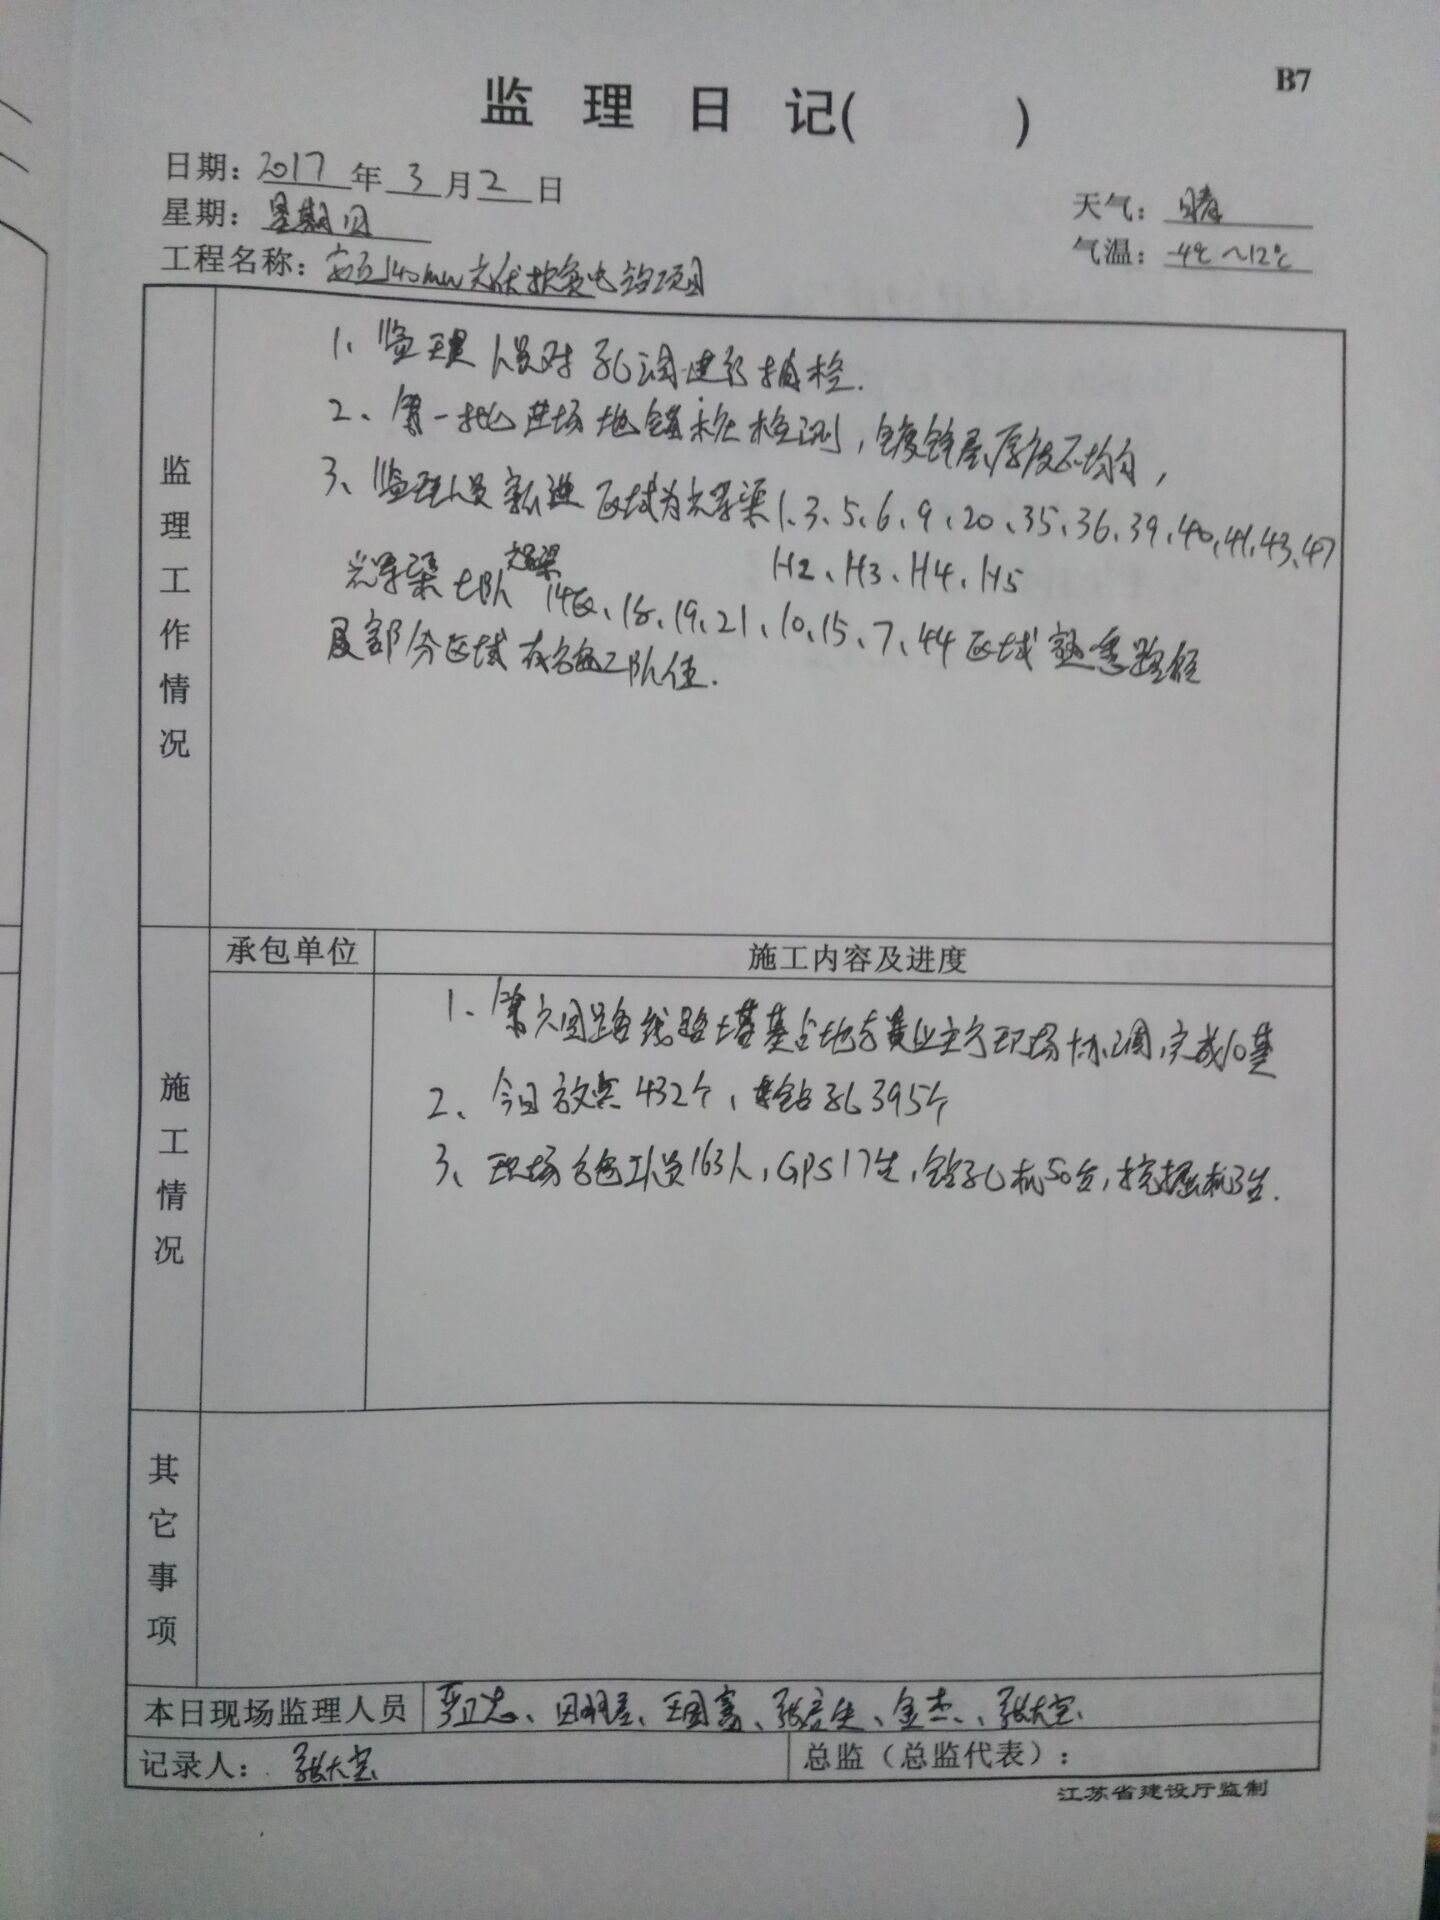 B7
监理日记( )
日期: 2017 年 3 月 2 日
星期: 星期日
天气: 晴
气温: -4℃~12℃
工程名称: 140mw光伏扶贫电站项目
监理工作情况
1、监理人员对孔洞进行抽检.
2、第一批进场地锚桩检测,镀锌层厚度不均匀,
3、监理人员 进区域为光明渠1、3、5、6、9、20、35、36、39、40、41、43、47
H2、H3、H4、H5
14区、18、19、21、10、15、7、44区域熟悉路径
及部分区域 施工队伍.
施工情况
承包单位
施工内容及进度
1、第六回路线路塔基占地 业主 现场协调,完成10基
2、今日放点432个,钻孔395个
3、现场 工人员163人,GPS17台,钻孔机50台,挖掘机3台.
其它事项
本日现场监理人员 严卫忠、田 、王国富、张 、金杰、张大宝
记录人: 张大宝
总监(总监代表):
江苏省建设厅监制